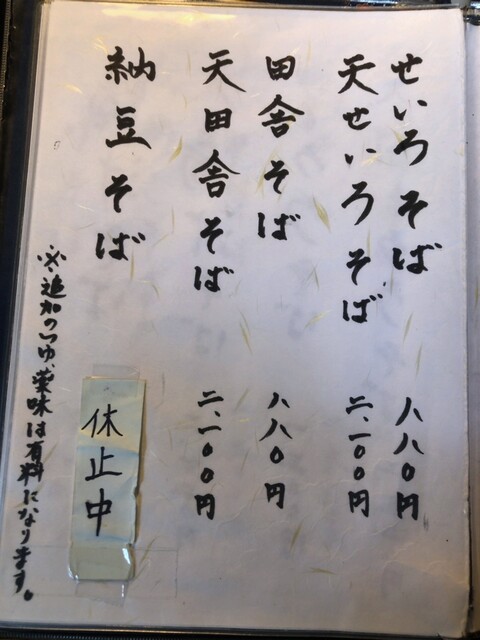 せいろそば 八八〇円
天せいろそば 二、一〇〇円
田舎そば 八八〇円
天田舎そば 二、一〇〇円
納豆そば 休止中
※追加のつゆ、薬味は有料になります。